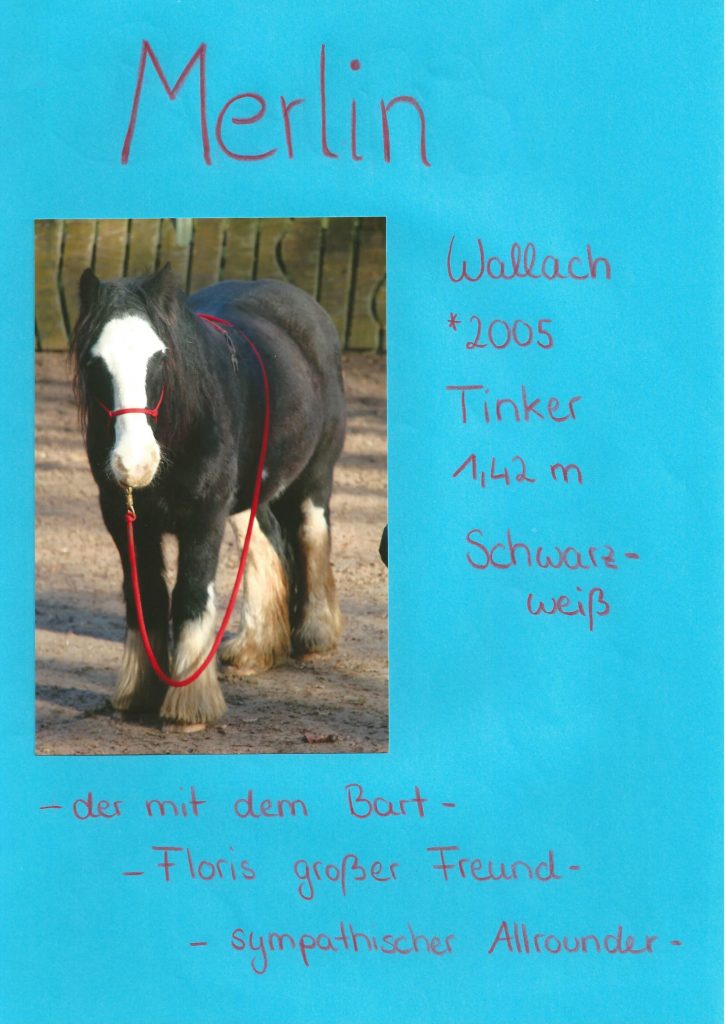 Merlin
Wallach
*2005
Tinker
1,42 m
Schwarz-
weiß
- der mit dem Bart -
- Floris großer Freund -
- sympathischer Allrounder -